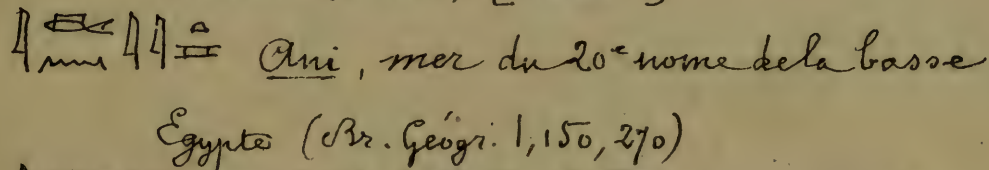 Ani, mer du 20e nome de la basse
Égypte (Br. Géogr. 1, 150, 270)